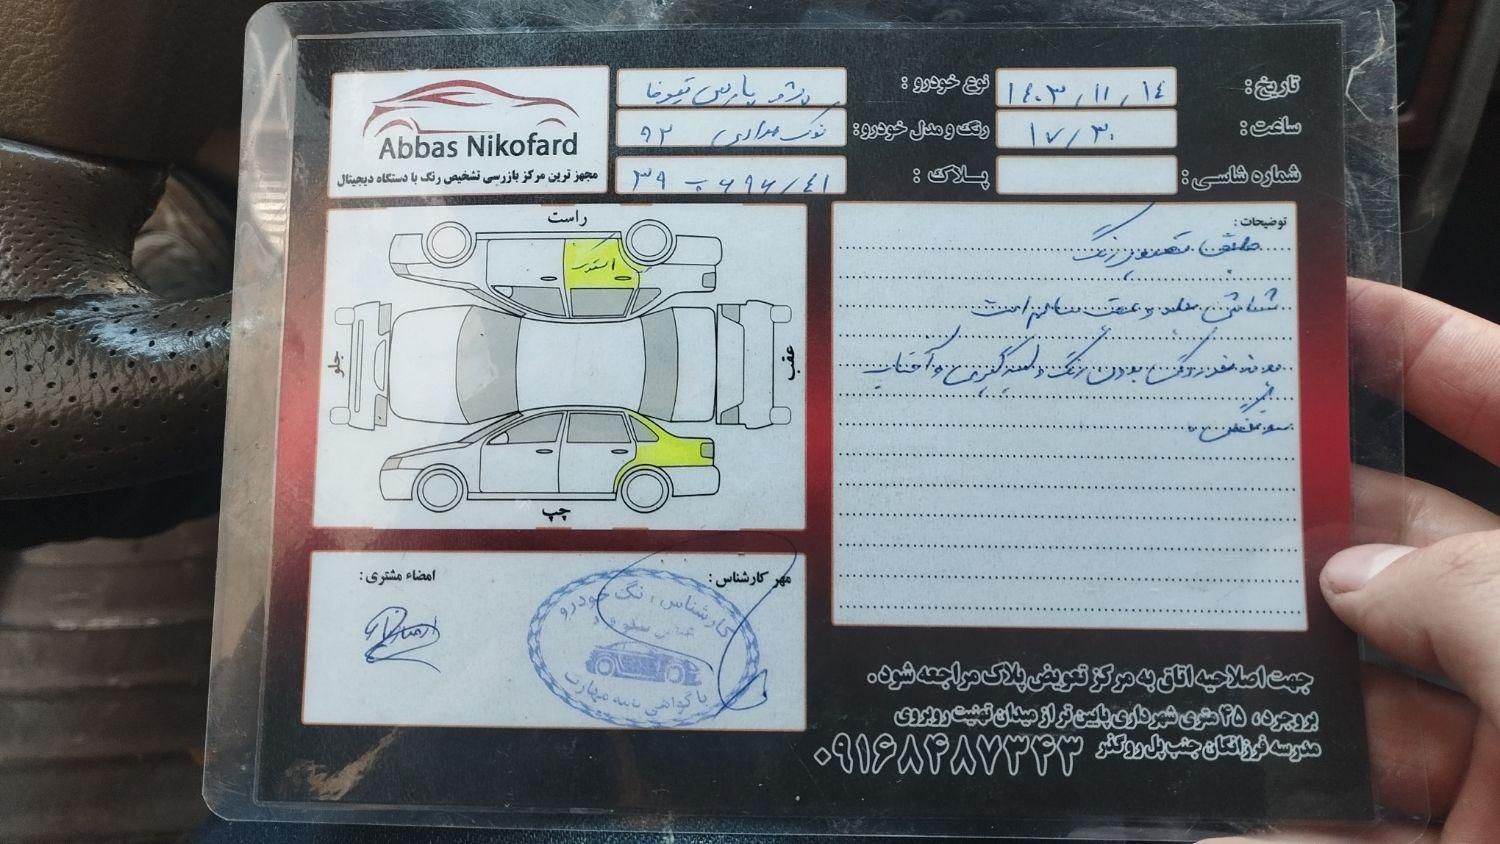 Abbas Nikofard
مجهز ترین مرکز بازرسی تشخیص رنگ با دستگاه دیجیتال
تاریخ : ۱۴۰۳/۱۱/۱۴
نوع خودرو : پژو پارس تیوفا
ساعت : ۱۷/۳۰
رنگ و مدل خودرو : نوک مدادی ۹۲
شماره شاسی :
پلاک :
راست
جلو
عقب
چپ
توضیحات :
طبق تصویر رنگ
شاسی جلو و عقب سالم است
امضاء مشتری :
مهر کارشناس :
کارشناس رنگ خودرو
با گواهی نامه مهارت
جهت اصلاحیه اتاق به مرکز تعویض پلاک مراجعه شود .
بروجرد ، ۴۵ متری شهرداری پایین تر از میدان تهنیت روبروی
مدرسه فرزانگان جنب پل روگذر ۰۹۱۶۸۴۸۷۳۴۳